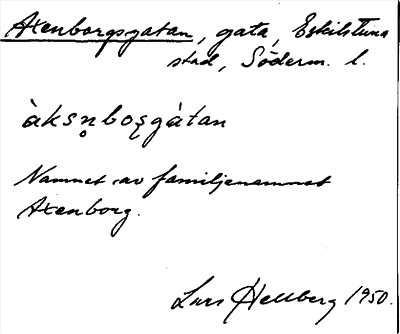 Axenborgsgatan, gata, Eskilstuna
stad, Söderm. l.
àksn̥boʂgàtan
Namnet av familjenamnet
Axenborg.
Lars Hellberg 1950.